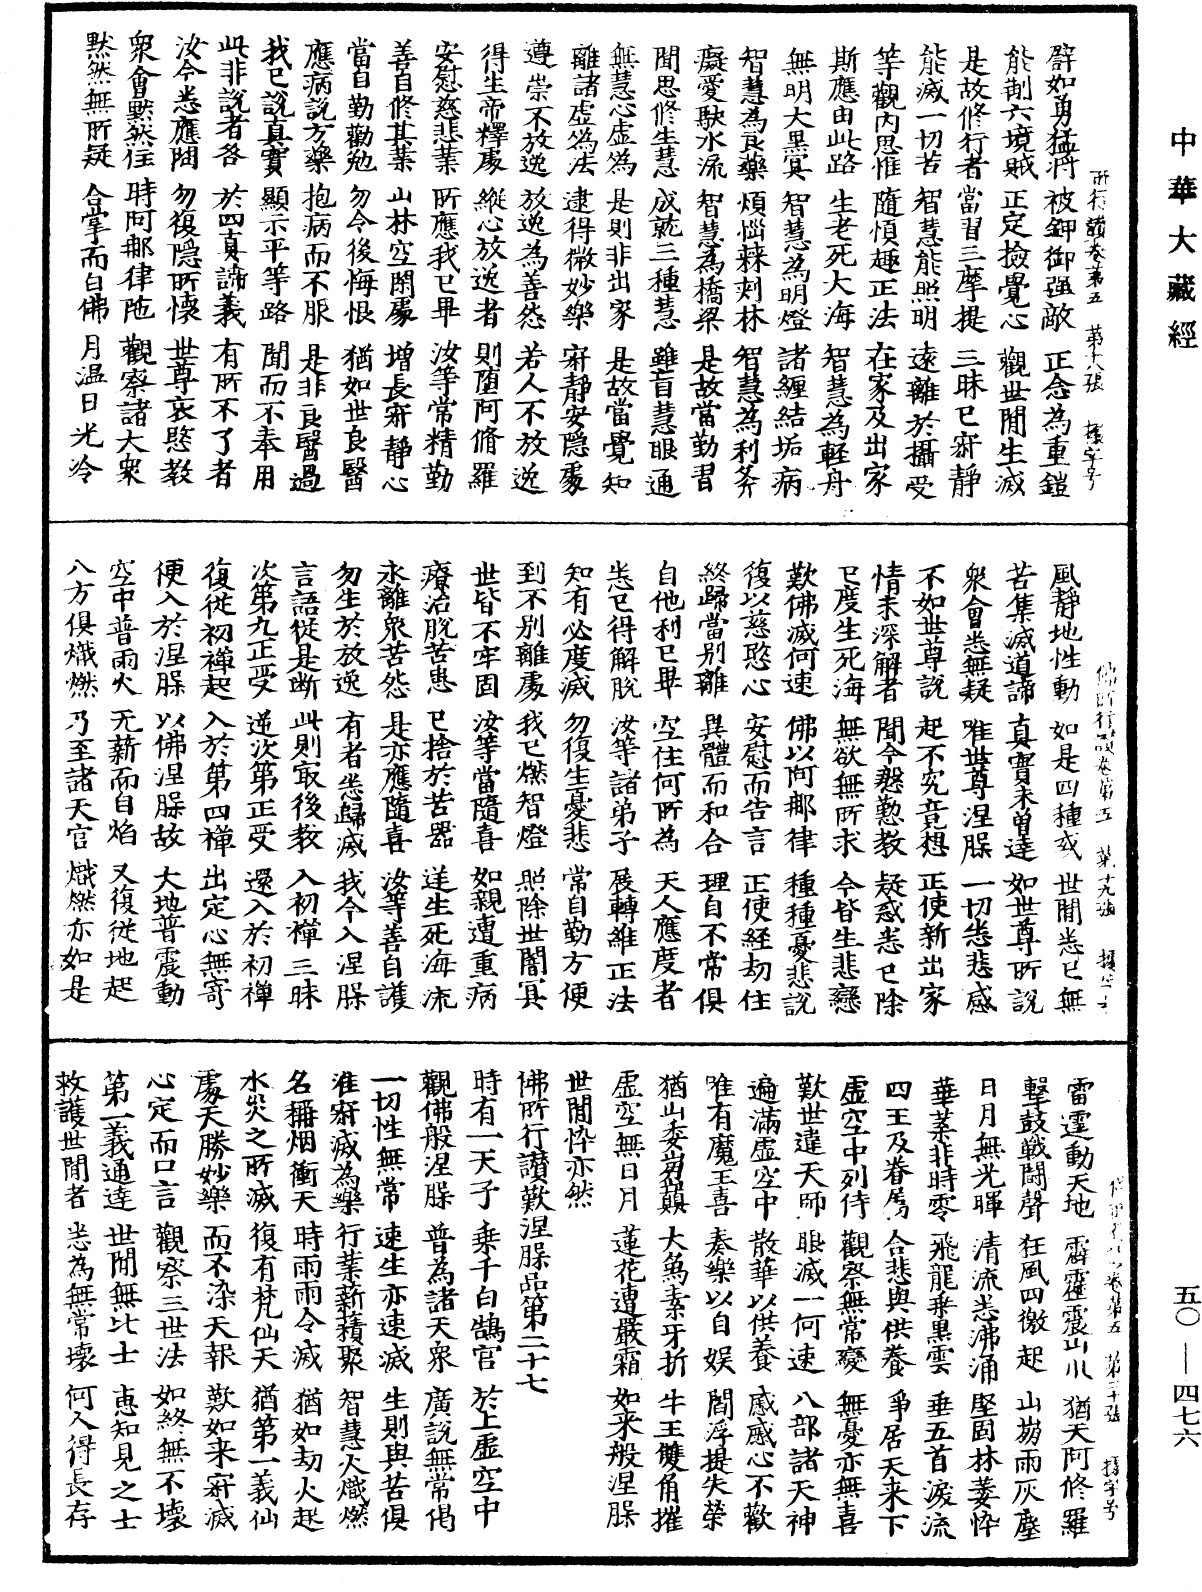 中華大藏經
所行讚卷第五　第十八張　
譬如勇猛將　被鉀御强敵　正念為重鎧
能制六境賊　正定撿覺心　觀世間生滅
是故修行者　當習三摩提　三昧已寂靜
能滅一切苦　智慧能照明　遠離於攝受
等觀內思惟　隨慎趣正法　在家及出家
斯應由此路　生老死大海　智慧為輕舟
無明大黑冥　智慧為明燈　諸纏結垢病
智慧為良藥　煩惱棘刺林　智慧為利斧
癡愛駃水流　智慧為橋梁　是故當勤習
聞思修生慧　成就三種慧　雖盲慧眼通
無慧心虛偽　是則非出家　是故當覺知
離諸虛偽法　逮得微妙樂　寂靜安隱處
遵崇不放逸　放逸為善怨　若人不放逸
得生帝釋處　縱心放逸者　則墮阿脩羅
安慰慈悲業　所應我已畢　汝等常精勤
善自修其業　山林空閑處　增長寂靜心
當自勤勸勉　勿令後悔恨　猶如世良醫
應病說方藥　抱病而不服　是非良醫過
我已說真實　顯示平等路　聞而不奉用
此非說者咎　於四真諦義　有所不了者
汝今悉應問　勿復隱所懷　世尊哀愍教
衆會默然住　時阿那律陁　觀察諸大衆
默然無所疑　合掌而白佛　月温日光冷
佛所行讚卷第五　第十九張　
風靜地性動　如是四種或　世間悉已無
苦集滅道諦　真實未曾違　如世尊所說
衆會悉無疑　唯世尊涅槃　一切悉悲感
不如世尊說　起不究竟想　正使新出家
情未深解者　聞今慇懃教　疑惑悉已除
已度生死海　無欲無所求　今皆生悲戀
歎佛滅何速　佛以阿那律　種種憂悲說
復以慈愍心　安慰而告言　正使經劫住
終歸當別離　異體而和合　理自不常俱
自他利已畢　空住何所為　天人應度者
悉已得解脫　汝等諸弟子　展轉維正法
知有必度滅　勿復生憂悲　常自勤方便
到不別離處　我已燃智燈　照除世闇冥
世皆不牢固　汝等當隨喜　如親遭重病
療治脫苦患　已捨於苦器　逆生死海流
永離衆苦怨　是亦應隨喜　汝等善自護
勿生於放逸　有者悉歸滅　我今入涅槃
言語從是斷　此則㝡後教　入初禪三昧
次第九正受　逆次第正受　還入於初禪
復從初禪起　入於第四禪　出定心無寄
便入於涅槃　以佛涅槃故　大地普震動
空中普雨火　无薪而自焰　又復從地起
八方俱熾燃　乃至諸天宫　熾燃亦如是
卷第五　第二十張　
雷霆動天地　霹靂震山川　猶天阿修羅
擊鼓戰鬪聲　狂風四激起　山崩雨灰塵
日月無光暉　清流悉沸涌　堅固林萎悴
華葉非時零　飛龍乘黑雲　垂五首淚流
四王及眷屬　合悲與供養　爭居天来下
虛空中列侍　觀察無常變　無憂亦無喜
歎世違天師　眼滅一何速　八部諸天神
遍滿虛空中　散華以供養　慼慼心不歡
唯有魔王喜　奏樂以自娱　閻浮提失榮
猶山委崩巔　大鳥素牙折　牛王雙角摧
虛空無日月　蓮花遭嚴霜　如来般涅槃
世間悴亦然
佛所行讃歎涅槃品第二十七
時有一天子　乘千白鵠宫　於上虛空中
觀佛般涅槃　普為諸天衆　廣說無常偈
一切性無常　速生亦速滅　生則與苦俱
唯寂滅為樂　行業薪積聚　智慧火熾燃
名稱烟衝天　時雨雨令滅　猶如劫火起
水災之所滅　復有梵仙天　猶第一義仙
處天勝妙樂　而不染天報　歎如来寂滅
心定而口言　觀察三世法　如終無不壞
第一義通達　世間無比士　惠知見之士
救護世間者　悉為無常壞　何人得長存
五〇——四七六